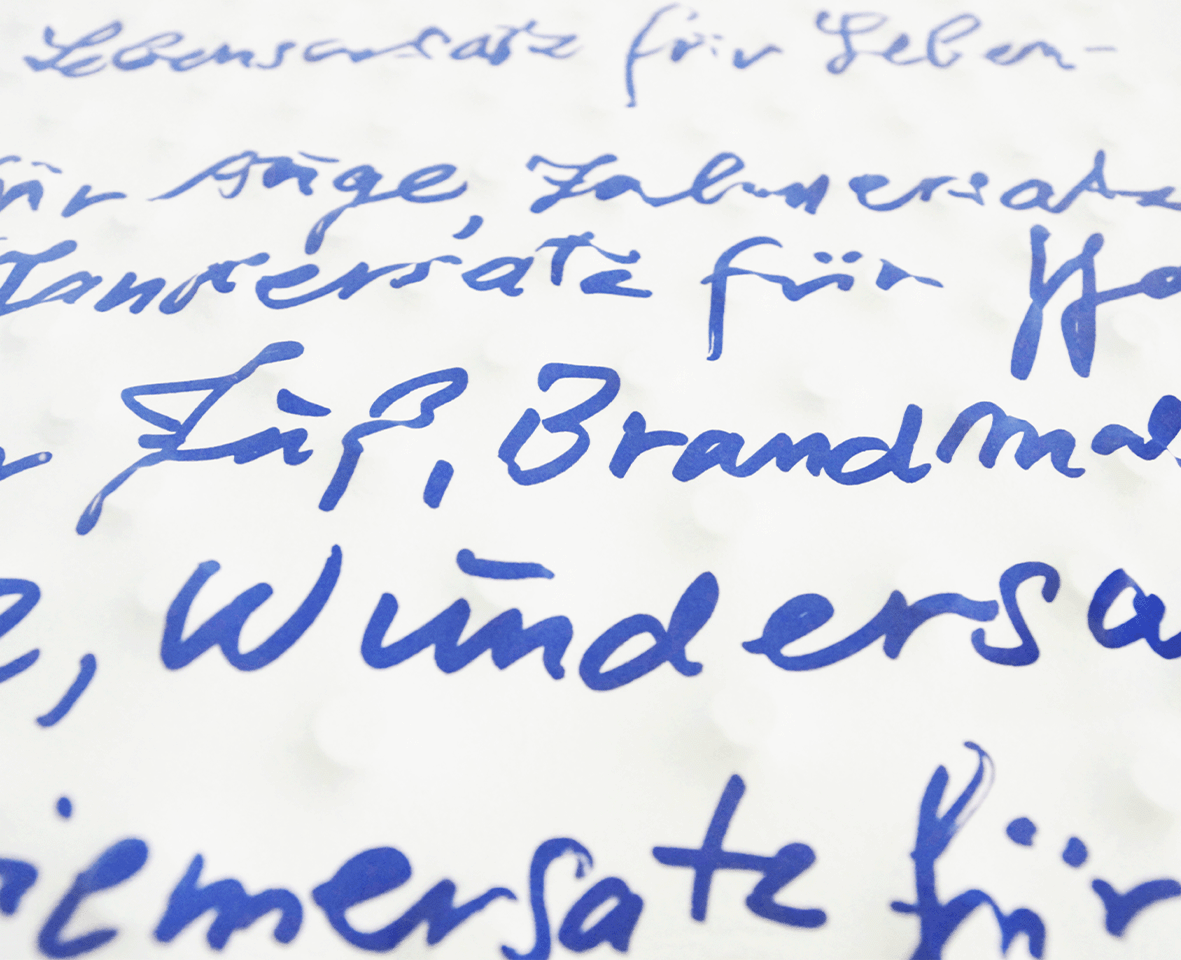 Lebensersatz für Leben-
für Auge, Zahnersatz
Handersatz für
Fuß, Brandmal
, Wundersa
iemersatz für